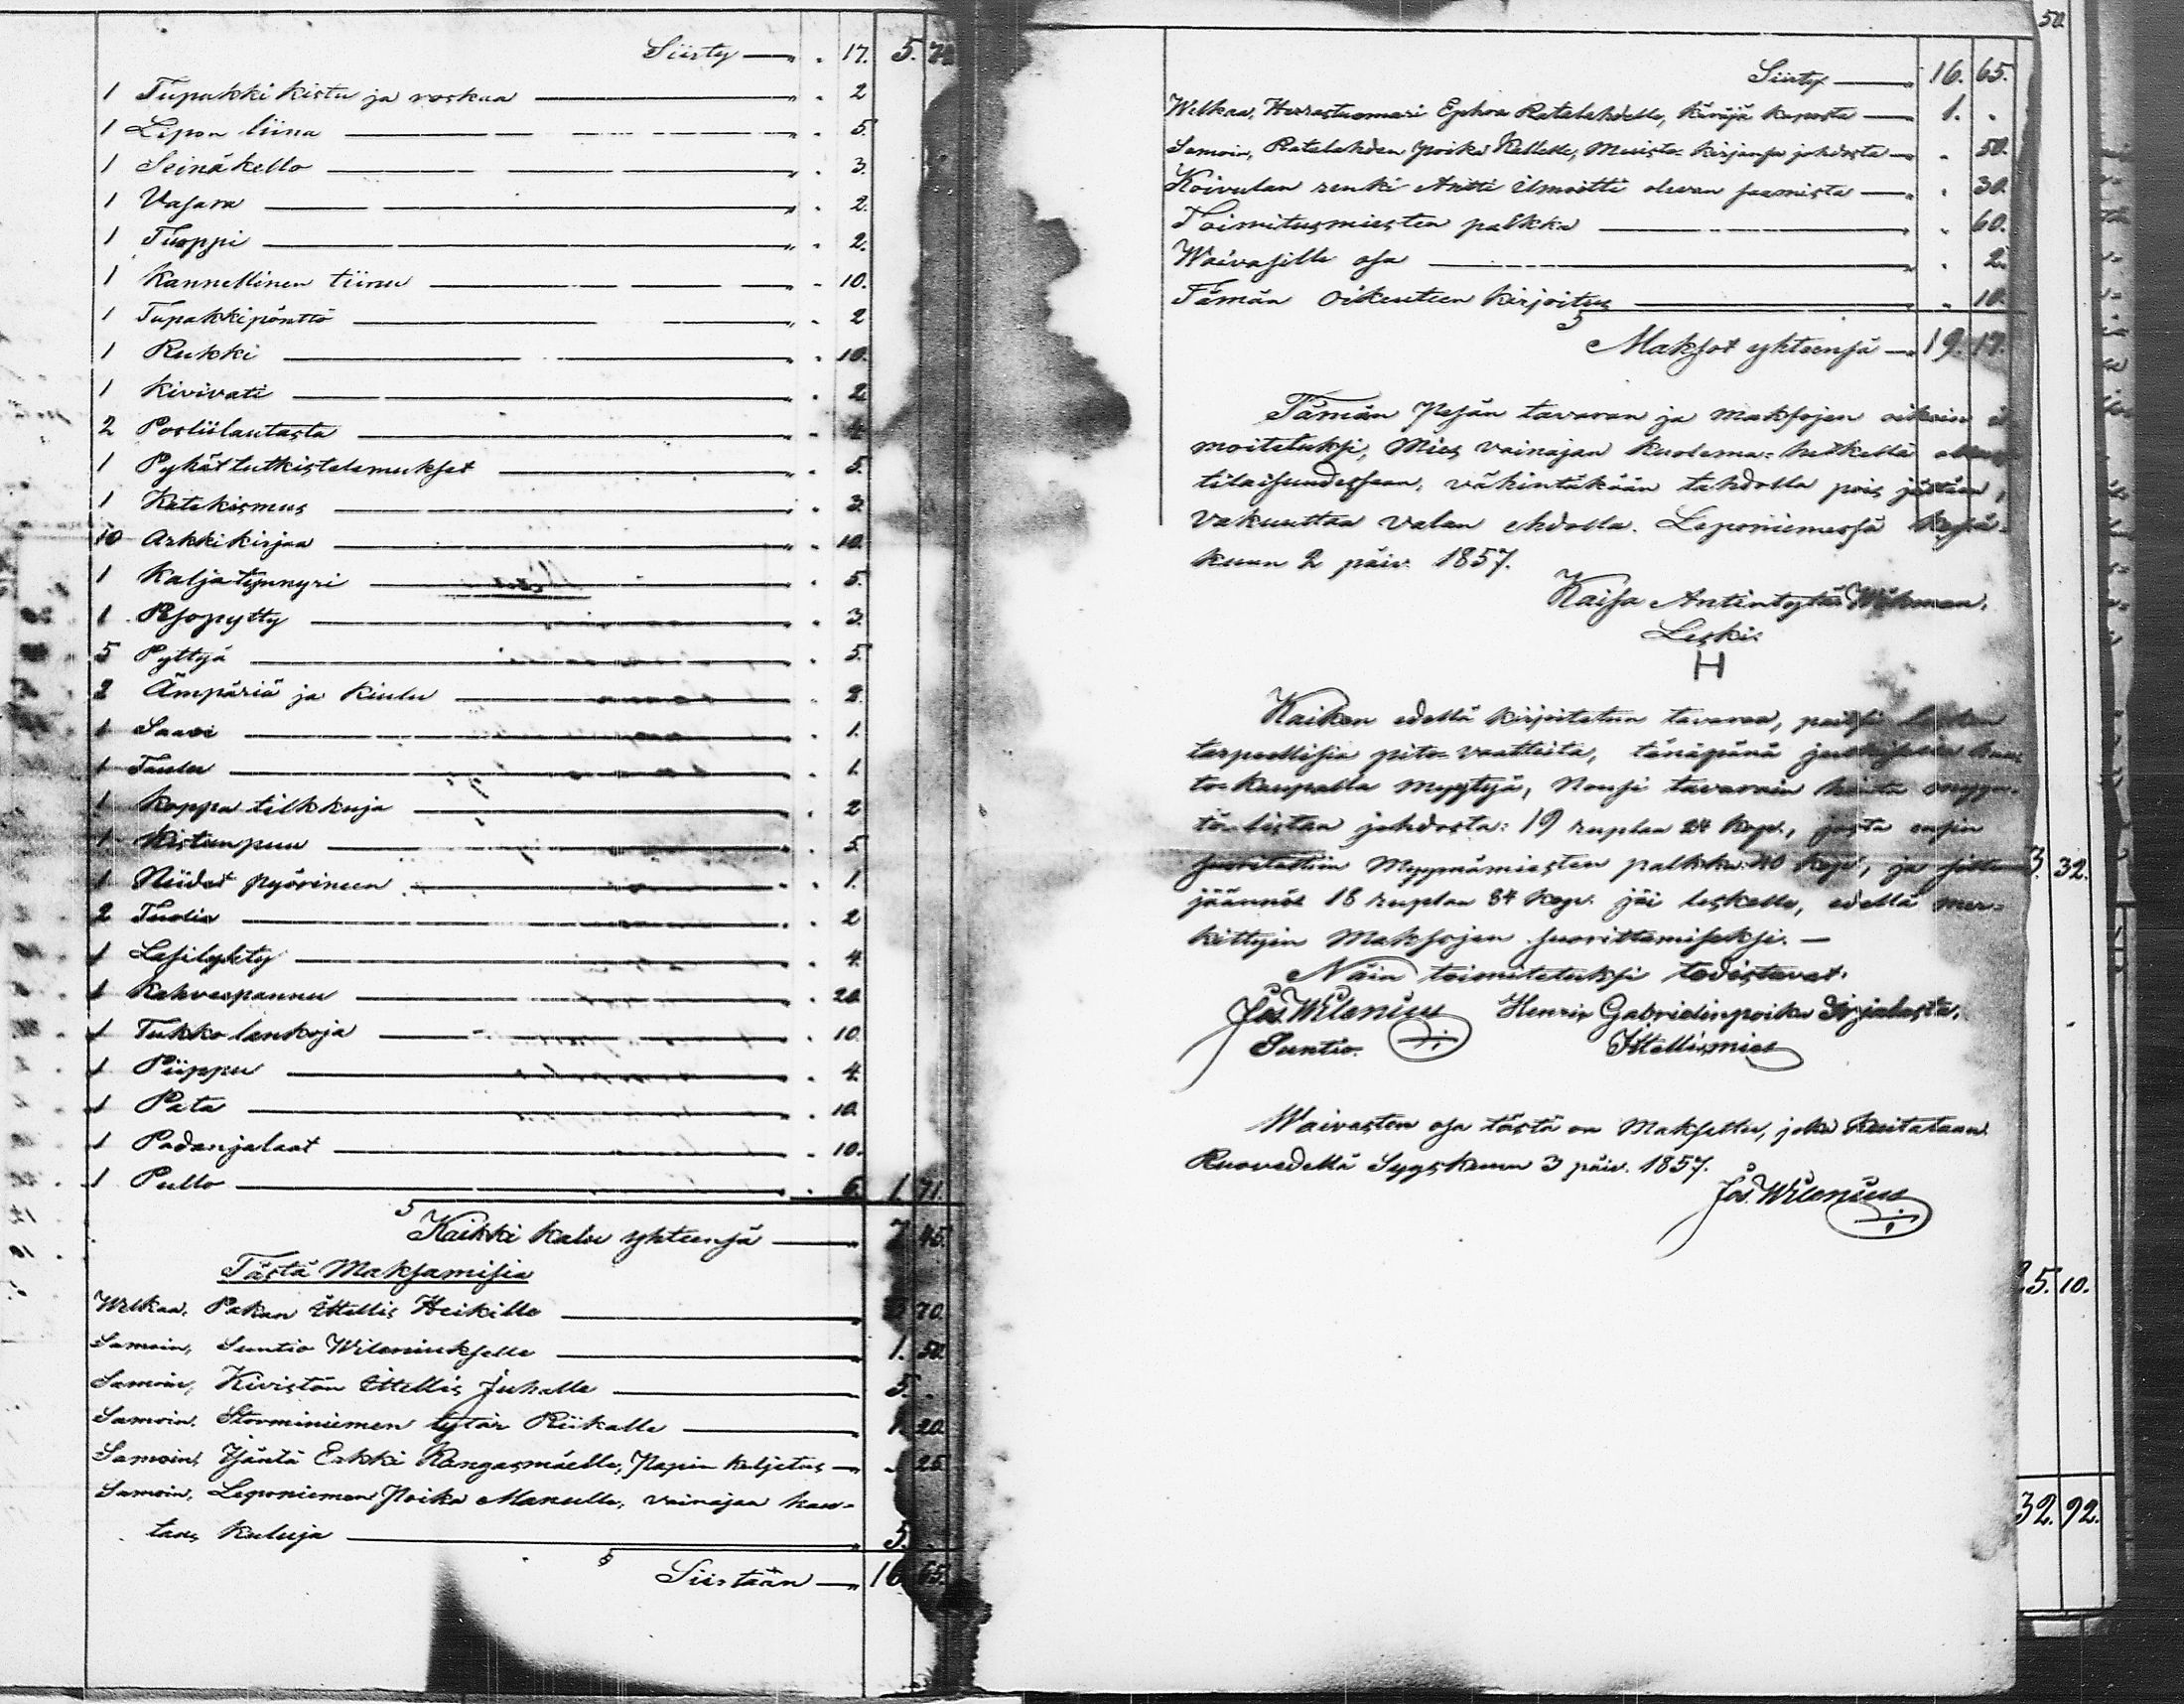 Siirty — " . 17. 5. 74
1 Tupakki kistu ja roskaa — " . 2
1 Lipon liina — " . 5.
1 Seinäkello — " . 3.
1 Vasara — " . 2.
1 Tuoppi — " . 2.
1 Kannellinen tiinu — " . 10.
1 Tupakkipönttö — " . 2
1 Rukki — " . 10.
1 Kivivati — " . 2
2 Posliilautasta — " . 4.
1 Pyhät tutkistelemukset — " . 5.
1 Katekismus — " . 3.
10 Arkkikirjaa — " . 10.
1 Kaljatynnyri — " . 5.
1 Pesopytty — " . 3.
5 Pyttyä — " . 5.
2 Ämpäriä ja kiulu — " . 2.
1 Saavi — " . 1.
1 Taulu — " . 1.
1 Koppa tilkkuja — " . 2
1 Kistunpuu — " . 5.
1 Niidet pyörineen — " . 1.
2 Tuolia — " . 2
1 Lasilykty — " . 4.
1 Kahvepannu — . 20.
1 Tukko lankoja — . 10.
1 Piippu — . 4.
1 Pata — . 10.
1 Padanjalaat — . 10.
1 Pullo — . 6. 1. 71.
Kaikki kalu yhteensä — 7. 45.
Tästä Maksamisia
Welkaa, Pakan Ittellis Heikille — 70.
Samoin, Suntio Wileniukselle — 1. 50.
Samoin, Kivistön Ittellis Juhalle — 5. .
Samoin, Storminiemen tytär Riikalle — 1. 20.
Samoin, Isäntä Erkki Kangasmäelle, Papin kuljetus — . 25.
Samoin, Leponiemen Poika Manulle, vainajan hau=
taus kuluja — 5. .
Siirtään — 16. 65.
50.
Siirty — 16. 65.
Welkaa, Herrastuomari Ephra Ratalahdelle, Käräjä kaposta — 1. .
Samoin, Ratalahden poika Kallelle, Muisto-kirjansa johdosta — . 50.
Koivulan renki Antti ilmoitti olevan saamista — . 30.
Toimitusmiesten palkka — . 60.
Waivasille osa — . 2.
Tämän Oikeuteen kirjoitus — . 10.
Maksot yhteensä — 19. 17.
Tämän Pesän tavaran ja maksojen oikein il
moitetuksi, Mies vainajan kuolema=hetkellä
tilaisuudessaan, vähintäkään tahdolla pois jättän,
vakuuttaa valan ehdolla. Leponiemessä Kesä=
kuun 2 päiv. 1857.
Kaisa Antintytär Wihman,
Leski.
H
Kaiken edellä kirjoitetun tavaraa, paitsi Lesken
tarpeellisia pito-vaatteita, tänäpänä julkisella huu
to-kaupalla myytyä, Nousi tavarain hinta myyn=
tö-listan johdosta: 19 ruplaa 24 kop., josta ensin
suoritattiin Myymämiesten palkka: 40 kop., ja sitten
jäännös 18 ruplaa 84 kop. jäi leskelle, edellä mer=
kittyin Maksojen suorittamiseksi. —
Näin toimitetuksi todistavat.
Jos. Wilenius Henrik Gabrielinpoika Sirjalasta,
Suntio. Ittellismies
Waivasten osa tästä on Maksettu, joka kuitataan
Ruovedellä Syyskuun 3 päiv. 1857.
Jos. Wilenius
3. 32.
25. 10.
32. 92.